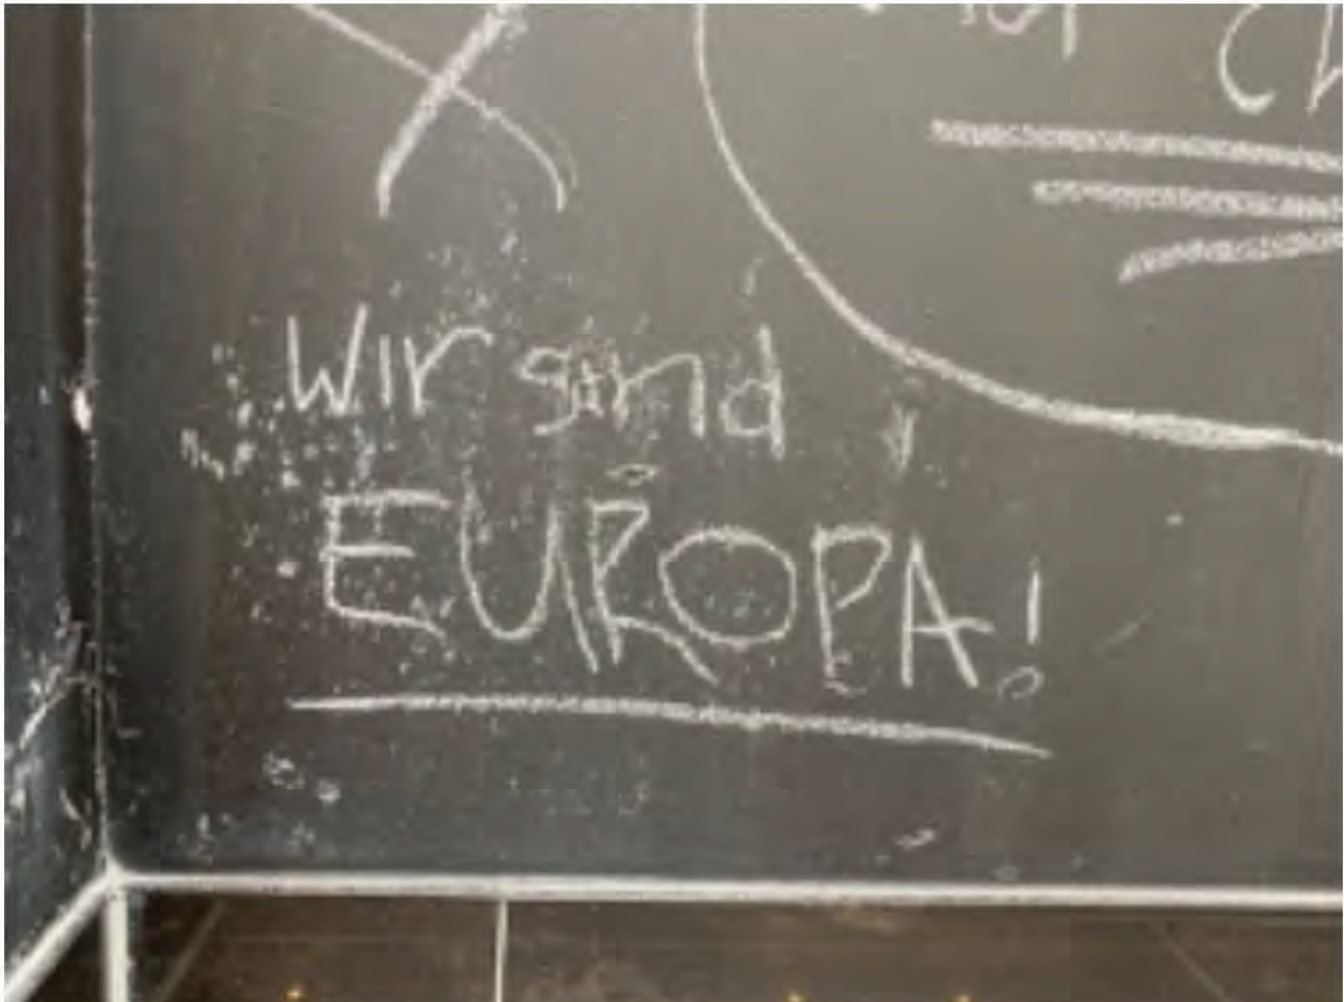 Wir sind
EUROPA!